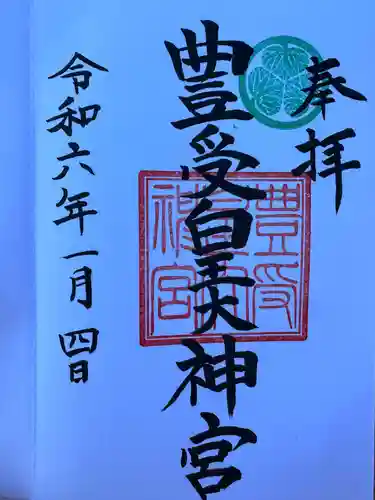 奉拝
豊受皇大神宮
令和六年一月四日
豊受
皇大
神宮